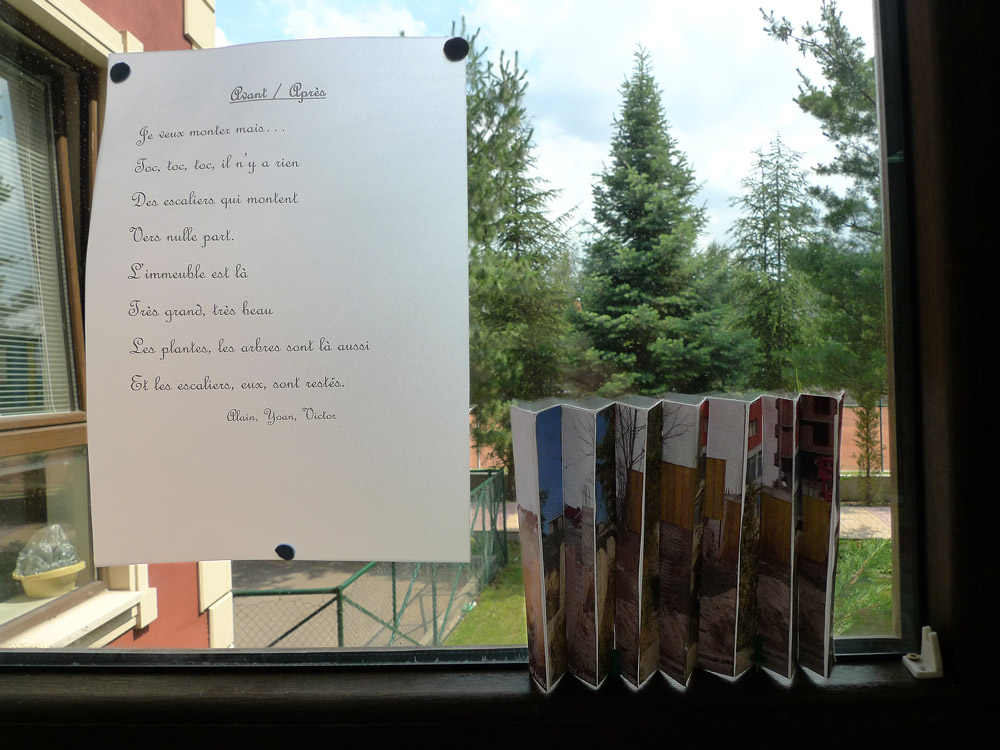 Avant / Après
Je veux monter mais...
Toc, toc, toc, il n'y a rien
Des escaliers qui montent
Vers nulle part.
L'immeuble est là
Très grand, très beau
Les plantes, les arbres sont là aussi
Et les escaliers, eux, sont restés.
Alain, Yoan, Victor